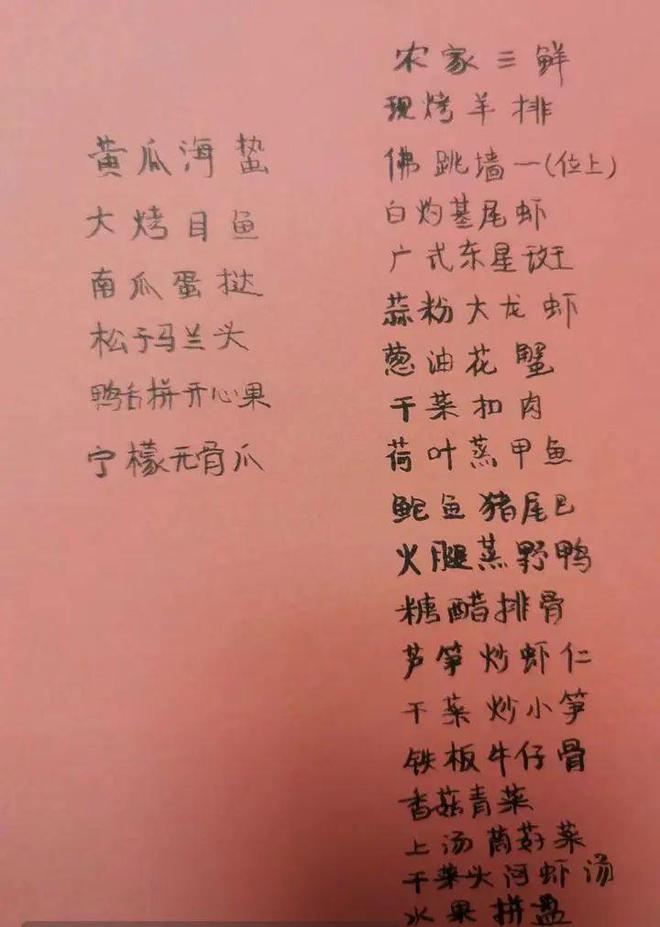 黄瓜海蜇
大烤目鱼
南瓜蛋挞
松子马兰头
鸭舌拼开心果
宁檬无骨爪
农家三鲜
现烤羊排
佛跳墙一(位上)
白灼基尾虾
广式东星斑
蒜粉大龙虾
葱油花蟹
干菜扣肉
荷叶蒸甲鱼
鲍鱼猪尾巴
火腿蒸野鸭
糖醋排骨
芦笋炒虾仁
干菜炒小笋
铁板牛仔骨
香菇青菜
上汤茼菜
干菜头河虾汤
水果拼盘